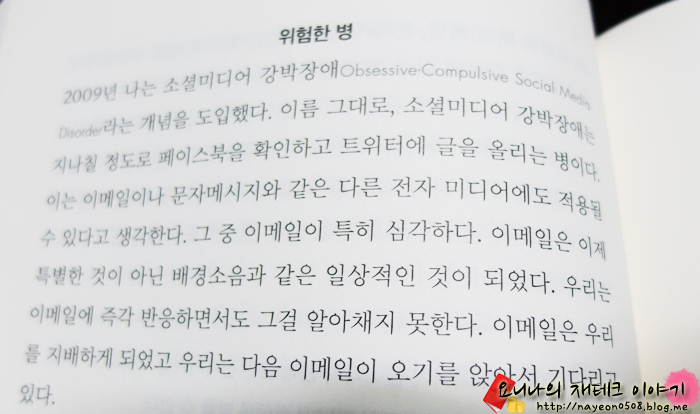 위험한 병
2009년 나는 소셜미디어 강박장애Obsessive-Compulsive Social Media
Disorder라는 개념을 도입했다. 이름 그대로, 소셜미디어 강박장애는
지나칠 정도로 페이스북을 확인하고 트위터에 글을 올리는 병이다.
이는 이메일이나 문자메시지와 같은 다른 전자 미디어에도 적용될
수 있다고 생각한다. 그 중 이메일이 특히 심각하다. 이메일은 이제
특별한 것이 아닌 배경소음과 같은 일상적인 것이 되었다. 우리는
이메일에 즉각 반응하면서도 그걸 알아채지 못한다. 이메일은 우리
를 지배하게 되었고 우리는 다음 이메일이 오기를 앉아서 기다리고
있다.
요니나의 재테크 이야기
http://nayeon0508.blog.me